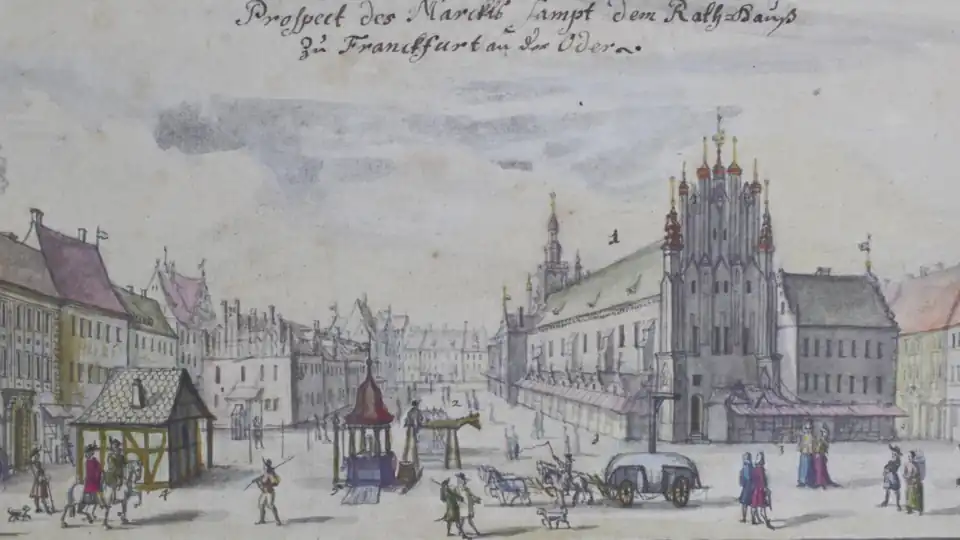 Prospect des Marckts sampt dem Rath=Hauß
zu Franckfurt an der Oder
1
2
4